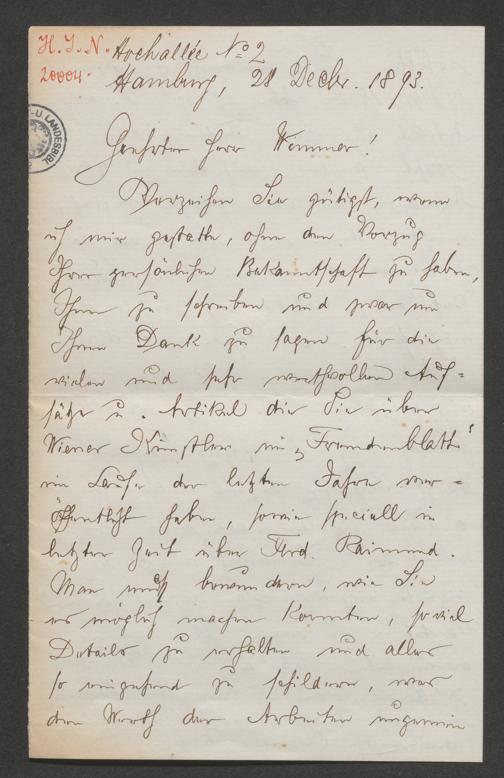 H. I. N.
20004.
U. LANDESBIBL
Hochallée No 2
Hamburg, 28 Decbr. 1893.
Geehrter Herr Wimmer!
Verzeihen Sie gütigst, wenn
ich mir gestatte, ohne den Vorzug
Ihrer persönlichen Bekanntschaft zu haben,
Ihnen zu schreiben und zwar um
Ihnen Dank zu sagen für die
vielen und sehr werthvollen Auf-
sätze u. Artikel die Sie über
Wiener Künstler im „Fremdenblatt“
im Laufe der letzten Jahre ver-
öffentlicht haben, sowie speciell in
letzter Zeit über Ferd. Raimund.
Man muß bewundern, wie Sie
es möglich machen konnten, so viel
Details zu erhalten und alles
so eingehend zu schildern, was
den Werth der Arbeiten ungemein